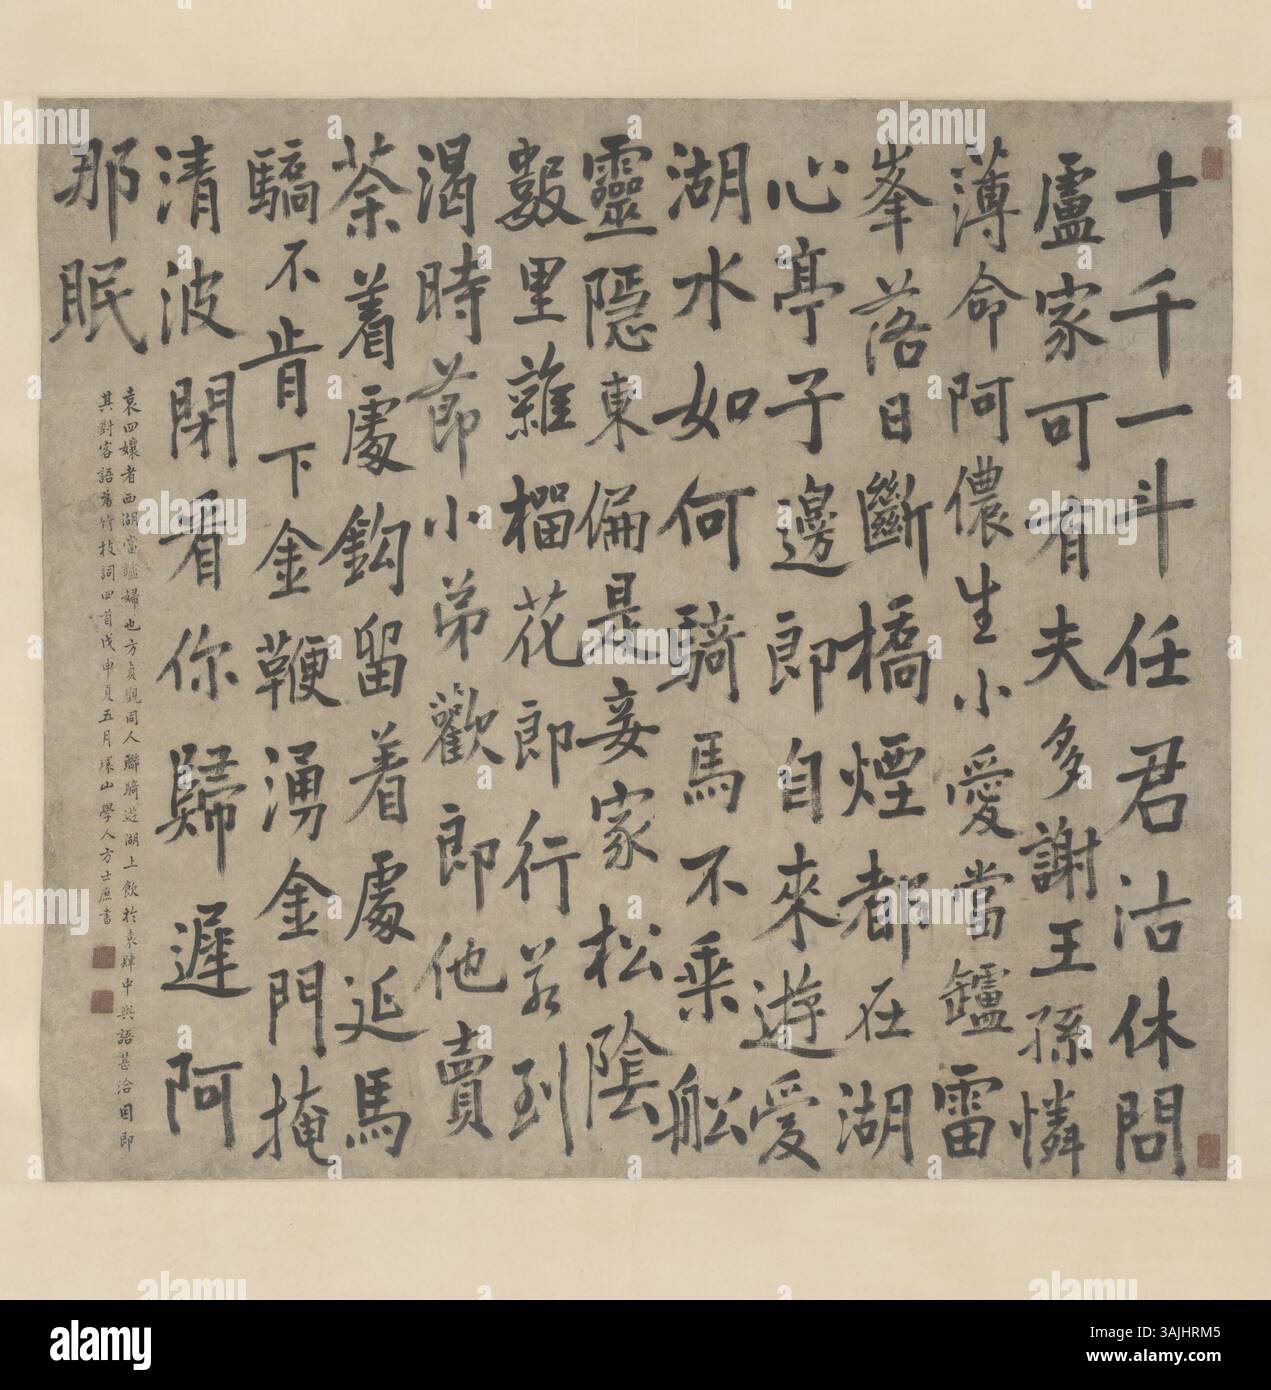 十千一斗任君沽休問
盧家可有夫多謝王孫憐
薄命阿儂生小愛當罏雷
峯落日斷橋煙都在湖
心亭子邊郎自來遊愛
湖水如何騎馬不乘舩
靈隱東偏是妾家松陰
數里雜榴花郎行若到
渴時節小弟歡郎他賣
茶着處鈎留着處延馬
驕不肯下金鞭湧金門掩
清波閉看你歸遲阿
那眠
袁四孃者西湖當罏婦也方貞觀同人聯騎遊湖上飲於袁肆中與語甚洽因即
其對客語為竹枝詞四首戊申夏五月環山學人方士庶書
alamy
Image ID: 3AJHRM5
www.alamy.com